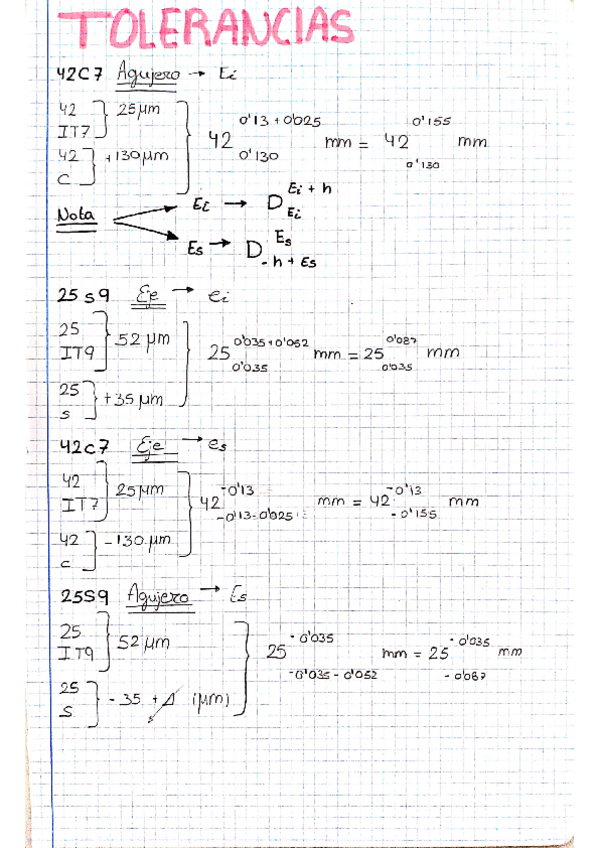 TOLERANCIAS
42C7 Agujero → Ei
42 IT7 } 25 µm
42 C } +130 µm
42 0'13 + 0'025 0'130 mm = 42 0'155 0'130 mm
Nota
Ei → D Ei + h Ei
Es → D Es - h + Es
25 s9 Eje → ei
25 IT9 } 52 µm
25 s } +35 µm
25 0'035 + 0'052 0'035 mm = 25 0'087 0'035 mm
42c7 Eje → es
42 IT7 } 25 µm
42 c } -130 µm
42 -0'13 -0'13-0'025 mm = 42 -0'13 -0'155 mm
25S9 Agujero → Es
25 IT9 } 52 µm
25 S } -35 + Δ (µm)
25 -0'035 -0'035 - 0'052 mm = 25 -0'035 -0'087 mm